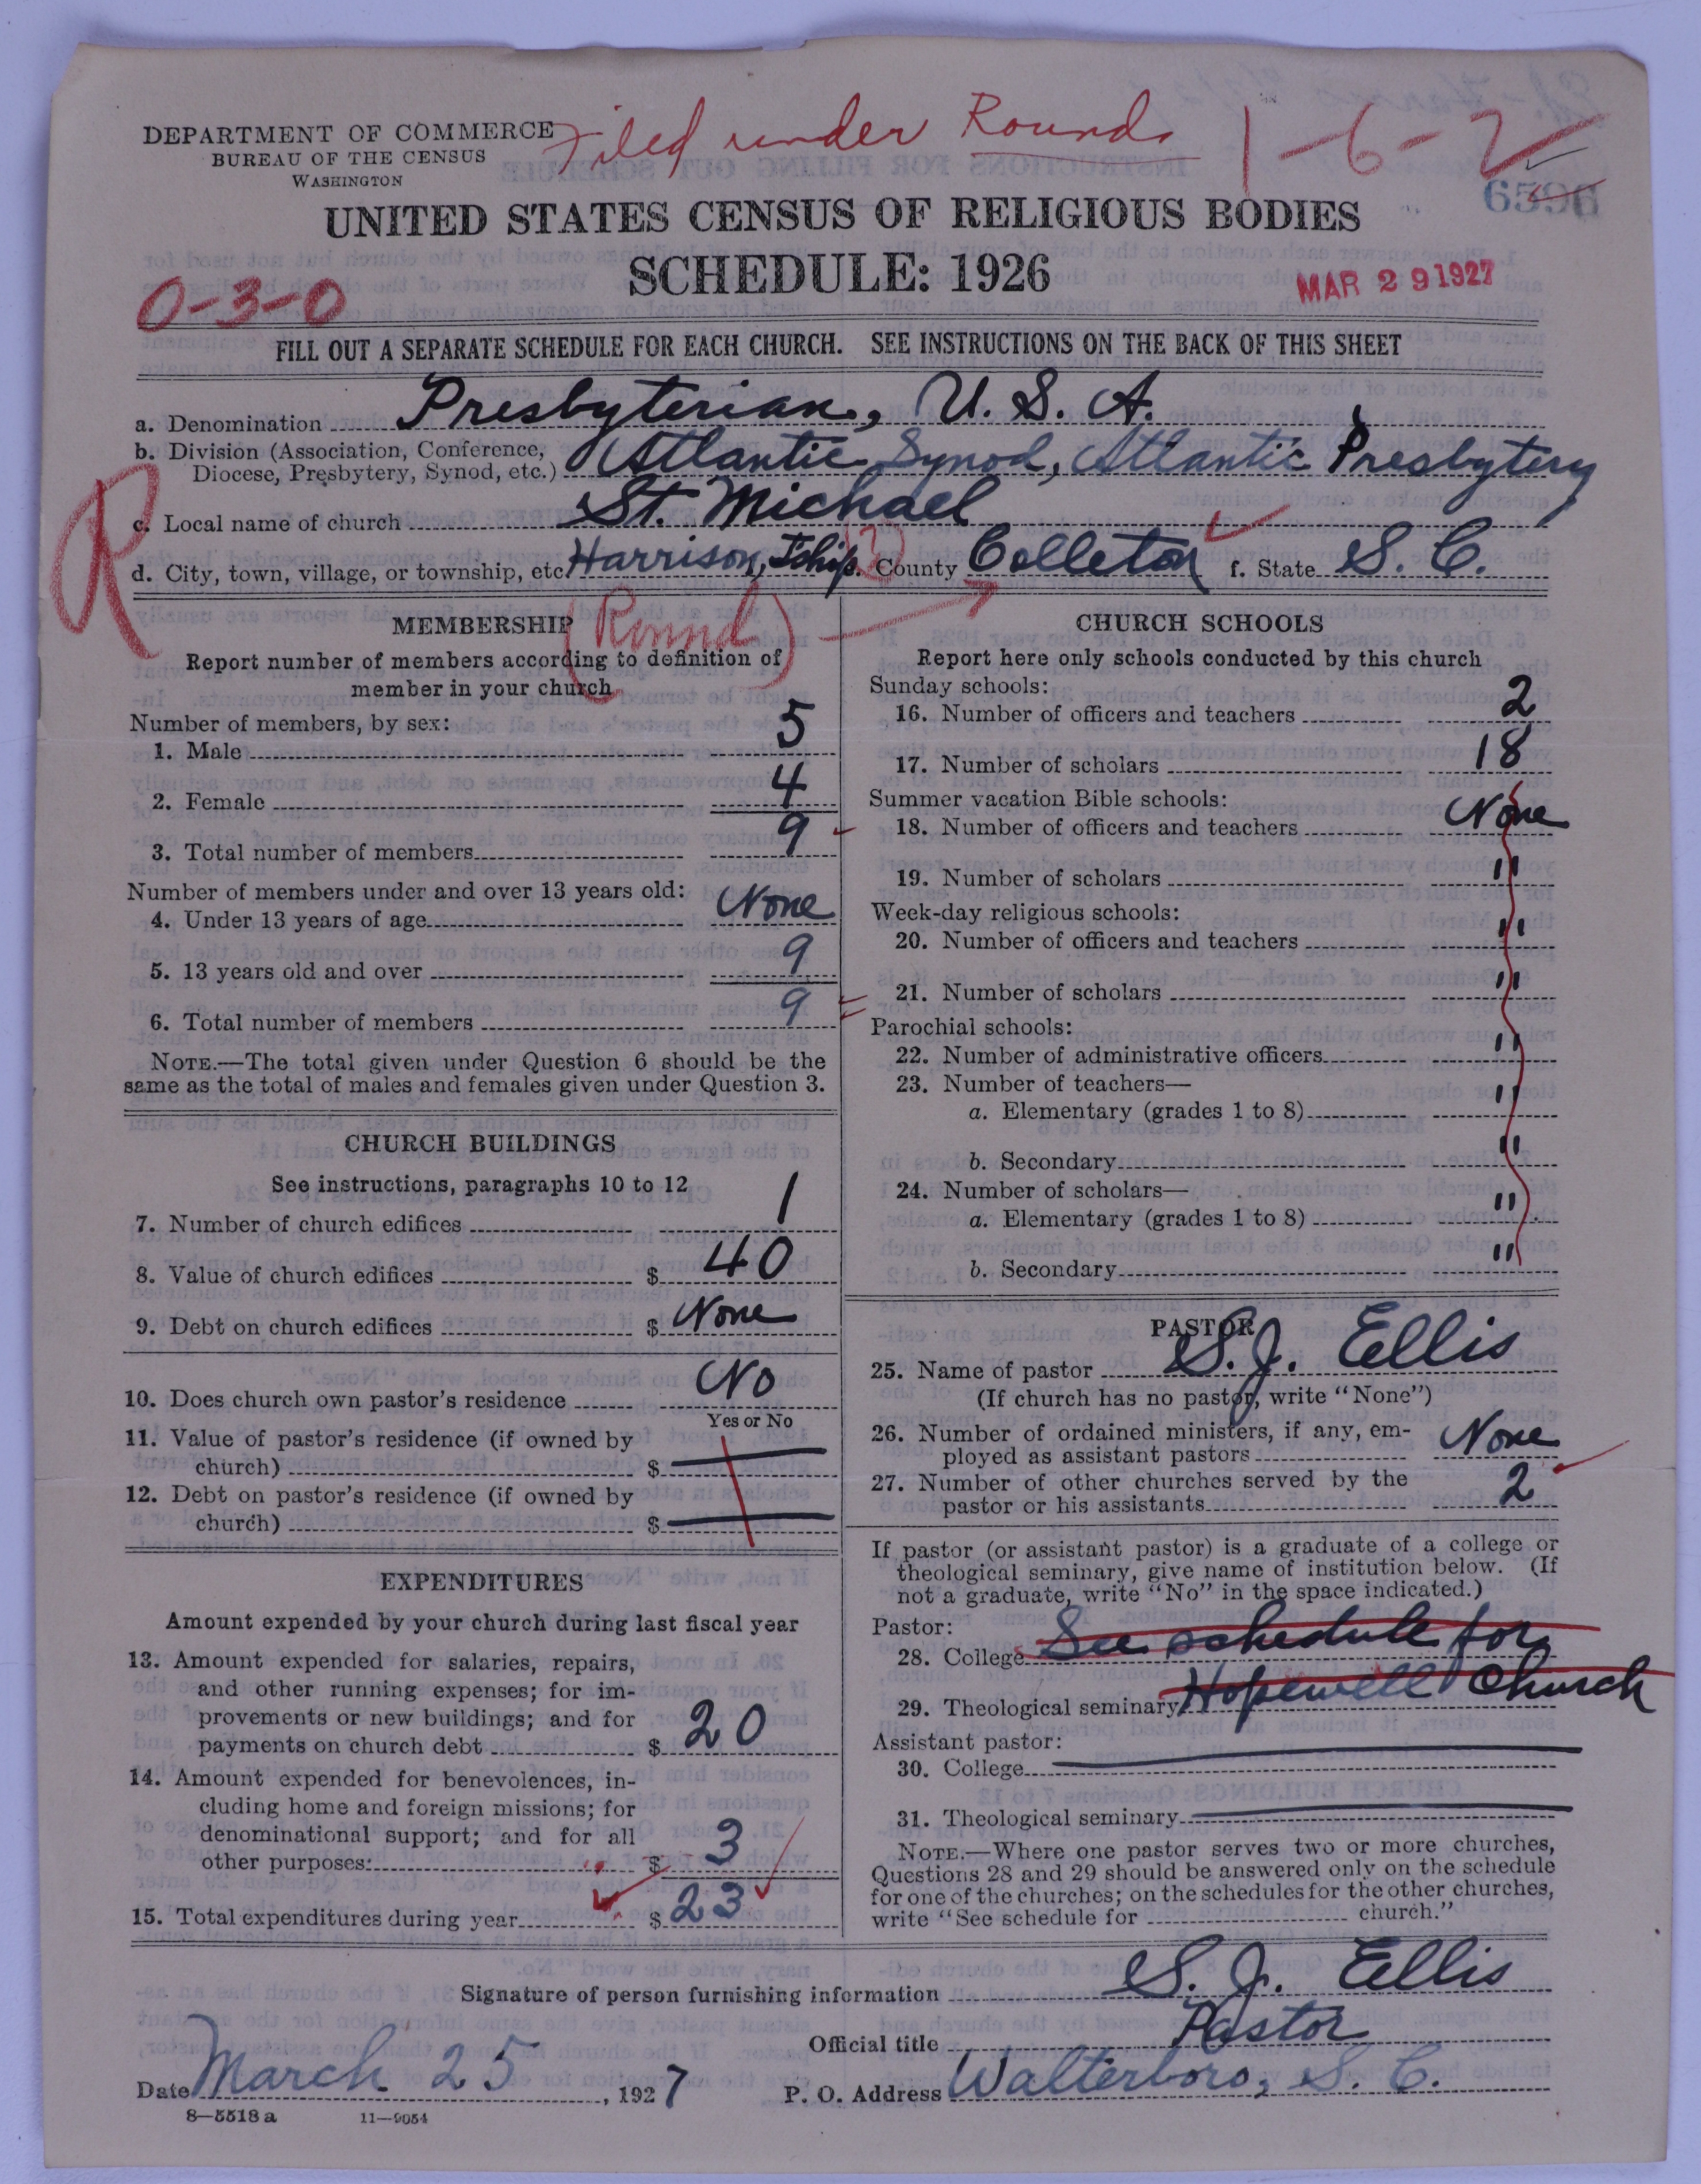 Filed under Round
1-6-2
DEPARTMENT OF COMMERCE
BUREAU OF THE CENSUS
WASHINGTON
UNITED STATES CENSUS OF RELIGIOUS BODIES
SCHEDULE: 1926
0-3-0
MAR 29 1927
FILL OUT A SEPARATE SCHEDULE FOR EACH CHURCH. SEE INSTRUCTIONS ON THE BACK OF THIS SHEET
a. Denomination Presbyterian, U. S. A.
b. Division (Association, Conference, Diocese, Presbytery, Synod, etc.) Atlantic Synod, Atlantic Presbytery
R
c. Local name of church St. Michael
d. City, town, village, or township, etc. Harrison, Tship. County Colleton f. State S. C.
(Round)
MEMBERSHIP
Report number of members according to definition of
member in your church
Number of members, by sex:
1. Male 5
2. Female 4
3. Total number of members 9
Number of members under and over 13 years old:
4. Under 13 years of age None
5. 13 years old and over 9
6. Total number of members 9
NOTE.—The total given under Question 6 should be the
same as the total of males and females given under Question 3.
CHURCH BUILDINGS
See instructions, paragraphs 10 to 12
7. Number of church edifices 1
8. Value of church edifices $ 40
9. Debt on church edifices $ None
10. Does church own pastor's residence No
Yes or No
11. Value of pastor's residence (if owned by
church) $
12. Debt on pastor's residence (if owned by
church) $
EXPENDITURES
Amount expended by your church during last fiscal year
13. Amount expended for salaries, repairs,
and other running expenses; for im-
provements or new buildings; and for
payments on church debt $ 20
14. Amount expended for benevolences, in-
cluding home and foreign missions; for
denominational support; and for all
other purposes: $ 3
15. Total expenditures during year $ 23
CHURCH SCHOOLS
Report here only schools conducted by this church
Sunday schools:
16. Number of officers and teachers 2
17. Number of scholars 18
Summer vacation Bible schools:
18. Number of officers and teachers None
19. Number of scholars "
Week-day religious schools:
20. Number of officers and teachers "
21. Number of scholars "
Parochial schools:
22. Number of administrative officers "
23. Number of teachers—
a. Elementary (grades 1 to 8) "
b. Secondary "
24. Number of scholars—
a. Elementary (grades 1 to 8) "
b. Secondary "
PASTOR
25. Name of pastor S. J. Ellis
(If church has no pastor, write "None")
26. Number of ordained ministers, if any, em-
ployed as assistant pastors None
27. Number of other churches served by the
pastor or his assistants 2
If pastor (or assistant pastor) is a graduate of a college or
theological seminary, give name of institution below. (If
not a graduate, write "No" in the space indicated.)
Pastor:
28. College See schedule for
29. Theological seminary Hopewell Church
Assistant pastor:
30. College
31. Theological seminary
NOTE.—Where one pastor serves two or more churches,
Questions 28 and 29 should be answered only on the schedule
for one of the churches; on the schedules for the other churches,
write "See schedule for church."
Signature of person furnishing information S. J. Ellis
Official title Pastor
Date March 25, 1927 P. O. Address Walterboro, S. C.
8—5518 a 11—9054